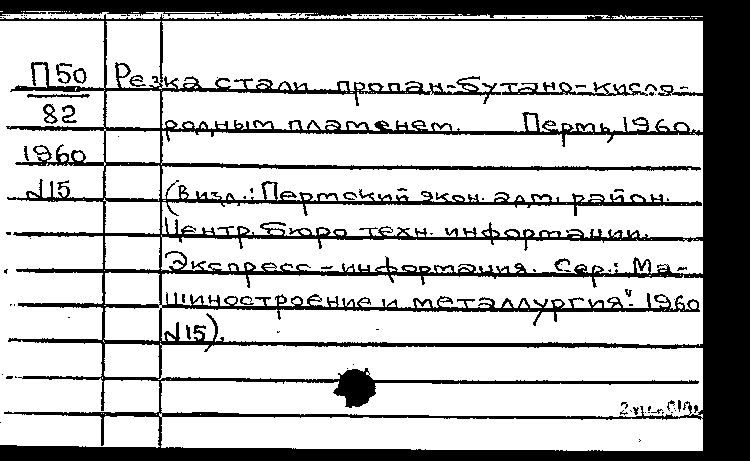 П50 Резка стали пропан-бутано-кисло-
82 родным пламенем. Пермь, 1960.
1960
№15 (В изд.: Пермский экон. адм. район.
Центр. бюро техн. информации.
Экспресс-информация. Сер.: Ма-
шиностроение и металлургия". 1960
№15).